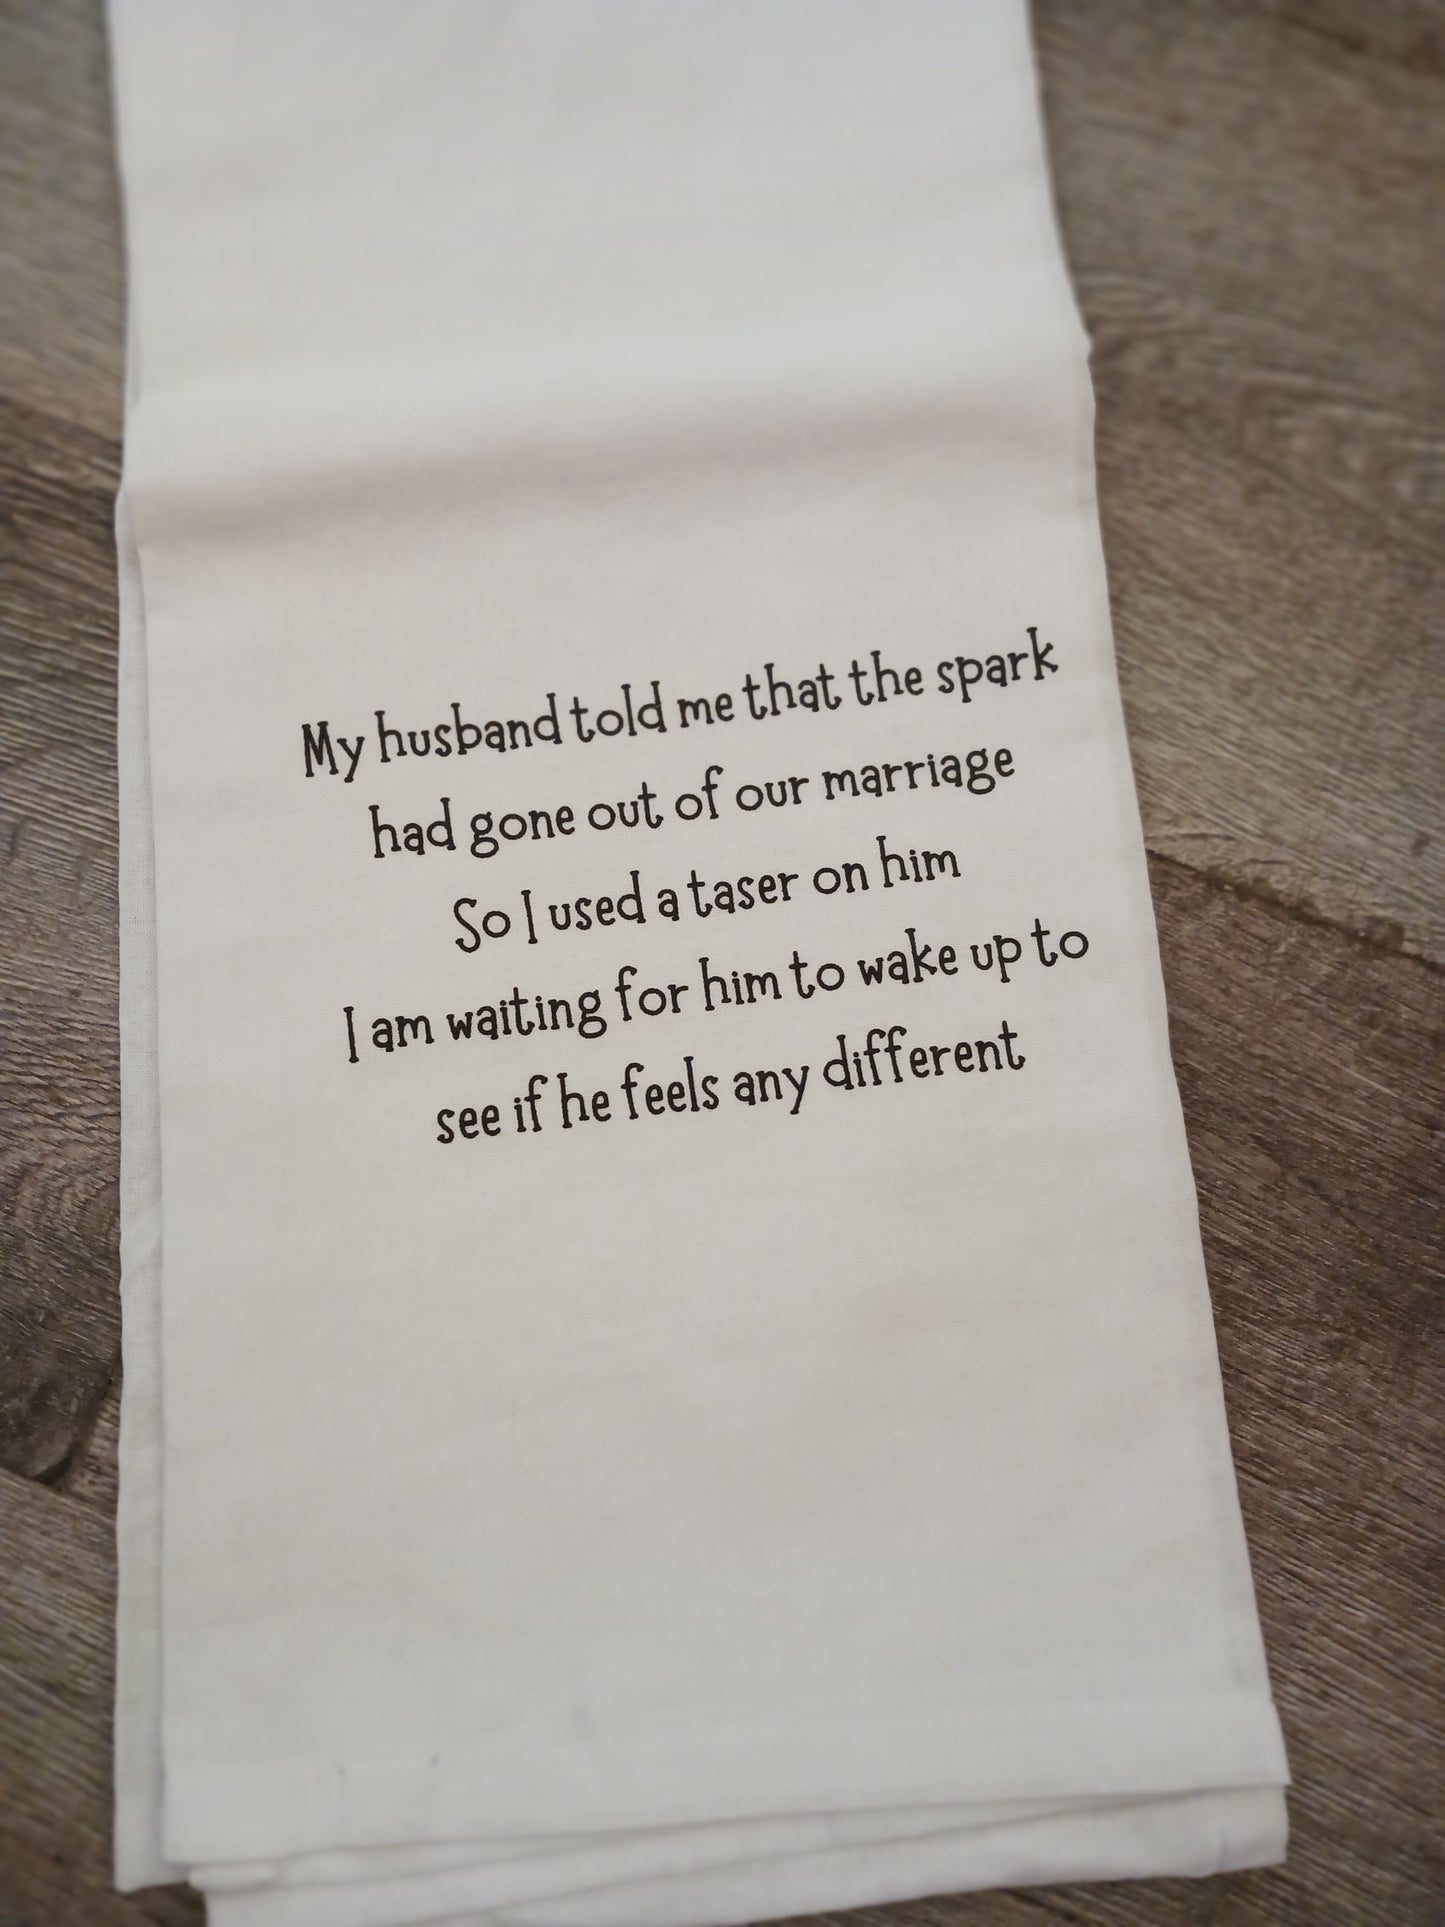 My husband told me that the spark
had gone out of our marriage
So I used a taser on him
I am waiting for him to wake up to
see if he feels any different